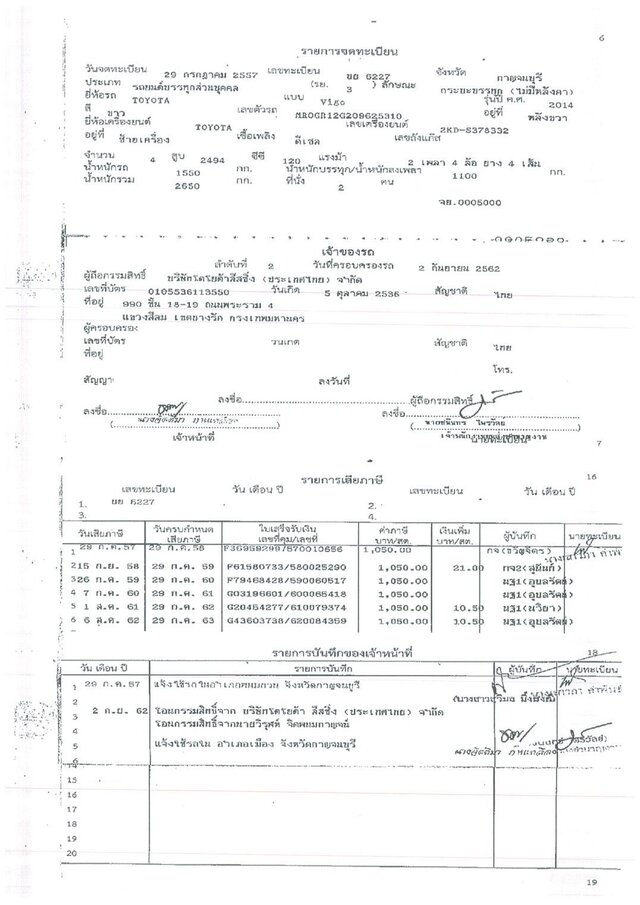 6
รายการจดทะเบียน
วันจดทะเบียน 29 กรกฎาคม 2557 เลขทะเบียน ยย 6227 จังหวัด กาญจนบุรี
ประเภท รถยนต์บรรทุกส่วนบุคคล (รย. 3 ) ลักษณะ กระบะบรรทุก (ไม่มีหลังคา)
ยี่ห้อรถ TOYOTA แบบ Vigo รุ่นปี ค.ศ. 2014
สี ขาว เลขตัวรถ MR0GR12G209625310 อยู่ที่ หลังขวา
ยี่ห้อเครื่องยนต์ TOYOTA เลขเครื่องยนต์ 2KD-S378332
อยู่ที่ ซ้ายเครื่อง เชื้อเพลิง ดีเซล เลขถังแก๊ส
จำนวน 4 สูบ 2494 ซีซี 120 แรงม้า 2 เพลา 4 ล้อ ยาง 4 เส้น
น้ำหนักรถ 1550 กก. น้ำหนักบรรทุก/น้ำหนักลงเพลา 1100 กก.
น้ำหนักรวม 2650 กก. ที่นั่ง 2 คน
จย.0005000
เจ้าของรถ
ลำดับที่ 2 วันที่ครอบครองรถ 2 กันยายน 2562
ผู้ถือกรรมสิทธิ์ บริษัทโตโยต้าลีสซิ่ง (ประเทศไทย) จำกัด
เลขที่บัตร 0105536113550 วันเกิด 5 ตุลาคม 2536 สัญชาติ ไทย
ที่อยู่ 990 ชั้น 18-19 ถนนพระราม 4
แขวงสีลม เขตบางรัก กรุงเทพมหานคร
ผู้ครอบครอง
เลขที่บัตร วันเกิด สัญชาติ ไทย
ที่อยู่
โทร.
สัญญา ลงวันที่
ลงชื่อ ผู้ถือกรรมสิทธิ์
ลงชื่อ ลงชื่อ
เจ้าหน้าที่ นายทะเบียน
7
รายการเสียภาษี 16
เลขทะเบียน วัน เดือน ปี เลขทะเบียน วัน เดือน ปี
1. ยย 6227 2.
3. 4.
วันเสียภาษี วันครบกำหนดเสียภาษี ใบเสร็จรับเงิน เลขที่คุม/เลขที่ ค่าภาษี บาท/สต. เงินเพิ่ม บาท/สต. ผู้บันทึก นายทะเบียน
1 29 ก.ค.57 29 ก.ค. 58 1,050.00 กจ(ขวัญจิตร)
2 15 ก.ย. 58 29 ก.ค. 59 F61580733/580025290 1,050.00 21.00
3 26 ก.ค. 59 29 ก.ค. 60 F79468428/590060517 1,050.00 นฐ1(อุบลรัตน์)
4 7 ก.ค. 60 29 ก.ค. 61 G03196601/600065418 1,050.00 นฐ1(อุบลรัตน์)
5 1 ส.ค. 61 29 ก.ค. 62 G20454277/610079374 1,050.00 10.50 นฐ1(นวิยา)
6 6 ส.ค. 62 29 ก.ค. 63 G43603738/620084359 1,050.00 10.50 นฐ1(อุบลรัตน์)
รายการบันทึกของเจ้าหน้าที่ 18
วัน เดือน ปี รายการบันทึก ผู้บันทึก นายทะเบียน
1 29 ก.ค.57 แจ้งใช้รถในอำเภอพนมทวน จังหวัดกาญจนบุรี
2
3 2 ก.ย. 62 โอนกรรมสิทธิ์จาก บริษัทโตโยต้า ลีสซิ่ง (ประเทศไทย) จำกัด
4 โอนกรรมสิทธิ์จากนายวิรุฬห์ จิตพนมกาญจน์
5 แจ้งใช้รถใน อำเภอเมือง จังหวัดกาญจนบุรี
6
14
15
16
17
18
19
20
19